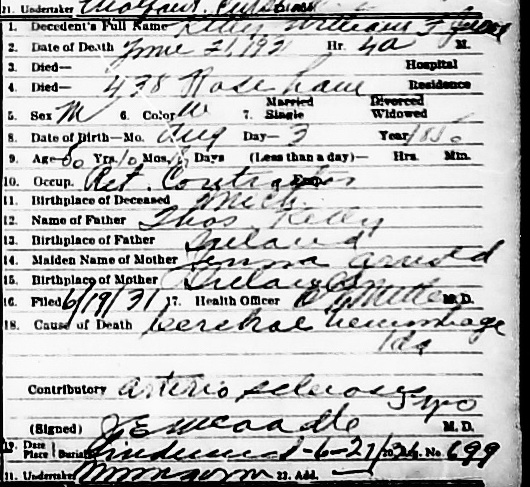 21. Undertaker
1. Decedent's Full Name Kelly, William F
2. Date of Death June 21, 193 Hr. 4a M.
3. Died— Hospital
4. Died— 438 Rose Lane Residence
5. Sex M 6. Color W 7. Married Single Divorced Widowed
8. Date of Birth—Mo. Aug Day— 3 Year 185
9. Age— 80 Yrs. 10 Mos. Days (Less than a day)— Hrs. Min.
10. Occup. Ret. Contractor
11. Birthplace of Deceased Mich.
12. Name of Father Thos Kelly
13. Birthplace of Father Ireland
14. Maiden Name of Mother Arnold
15. Birthplace of Mother Ireland
16. Filed 6/19/31 17. Health Officer M. D.
18. Cause of Death Cerebral hemmorhage
1 da
Contributory Arterio sclerosis
(Signed) M. D.
19. Date Place Burial 6-27/31 20. Reg. No 699
21. Undertaker 22. Add. —